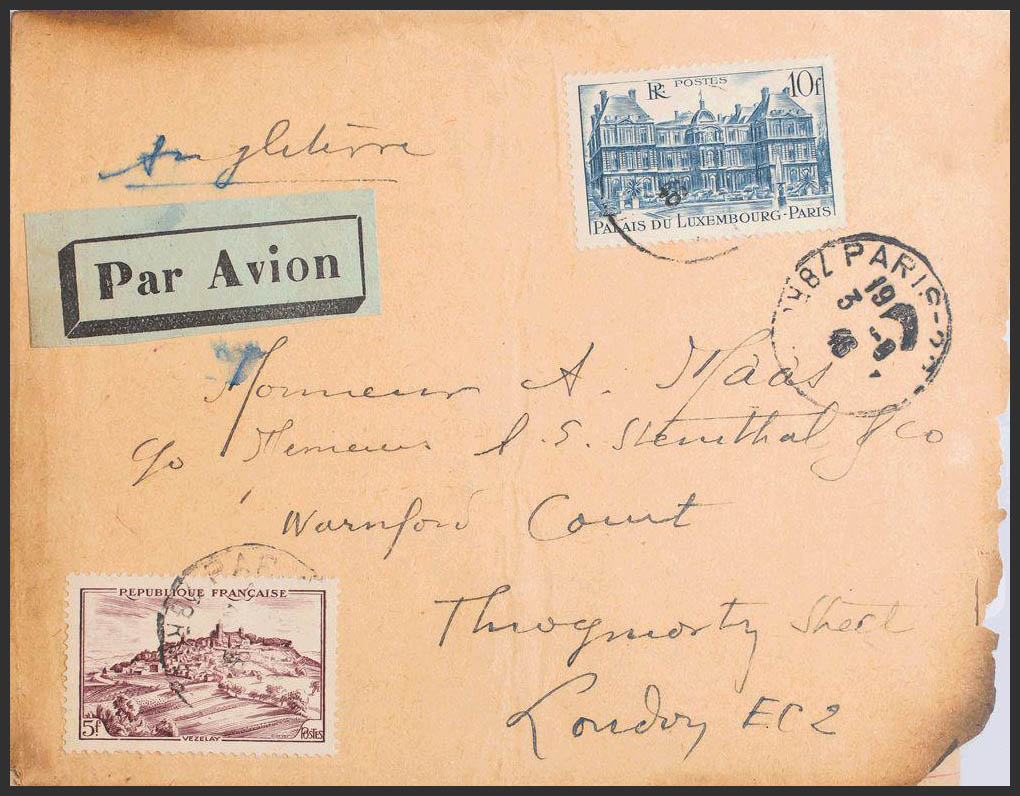 RF POSTES 10f
PALAIS DU LUXEMBOURG-PARIS
Angleterre
Par Avion
PARIS
19
3 -9
46
Monsieur A. Maas
c/o Messieurs S. Sternthal & Co
Warnford Court
Throgmorton Street
London EC2
PARIS
REPUBLIQUE FRANÇAISE
5f VEZELAY POSTES